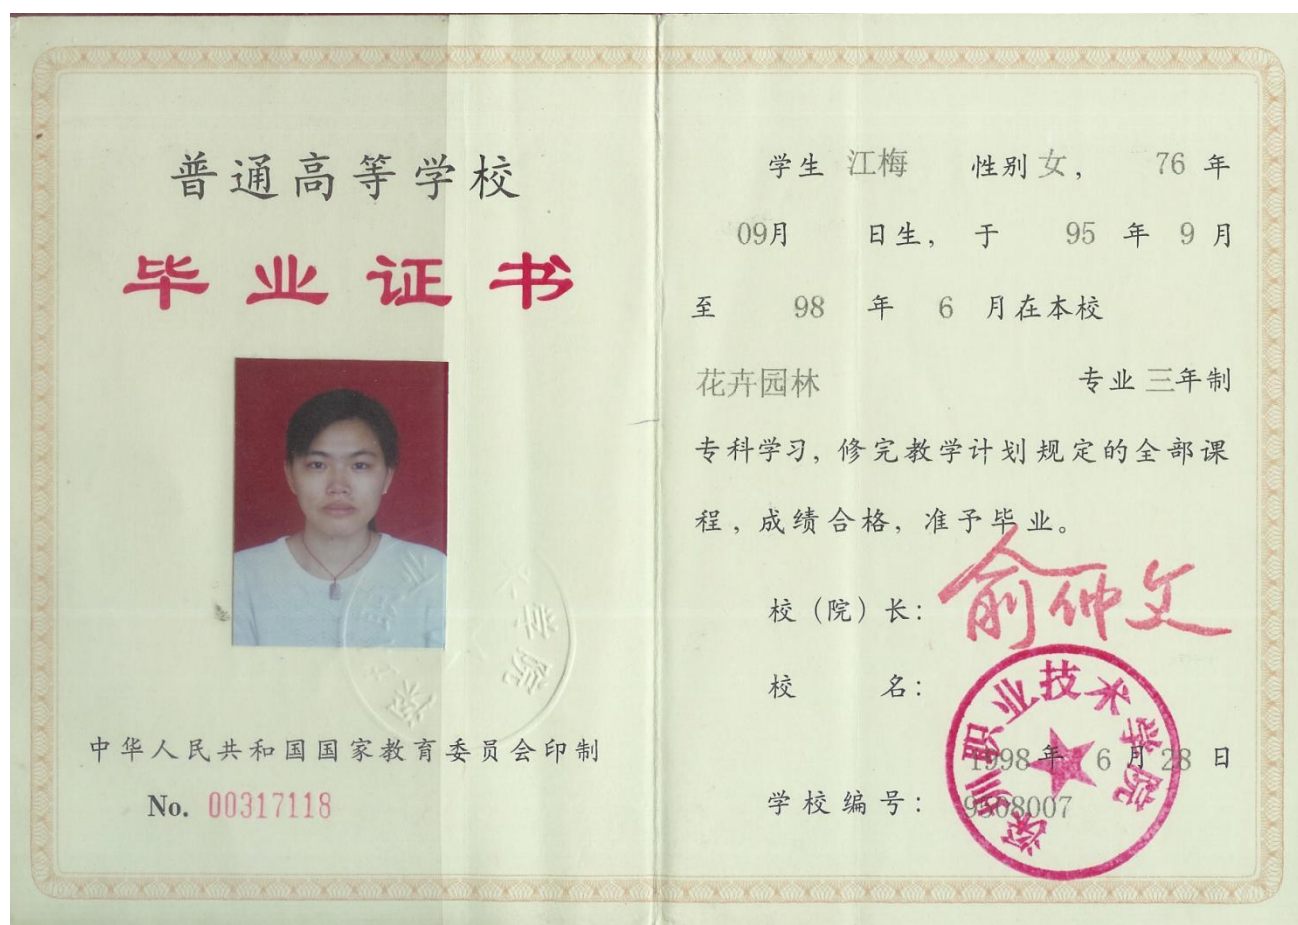 普通高等学校
毕业证书
中华人民共和国国家教育委员会印制
No. 00317118
学生 江梅 性别 女， 76 年
09月 日生， 于 95 年 9 月
至 98 年 6 月在本校
花卉园林 专业 三年制
专科学习，修完教学计划规定的全部课
程，成绩合格，准予毕业。
校（院）长： 俞仲文
校 名：
深圳职业技术学院
1998年 6 月 28 日
学校编号： 9508007